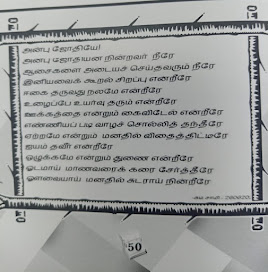 அன்பு ஜோதியே!
அன்பு ஜோதியென நின்றவர் நீரே
ஆசைகளை அடையச் செய்தவரும் நீரே
இனியவைக் கூறல் சிறப்பு என்றீரே
ஈகை தருவது நலமே என்றீரே
உழைப்பே உயர்வு தரும் என்றீரே
ஊக்கத்தை என்றும் கைவிடேல் என்றீரே
எண்ணியப்படி வாழச் சொல்லித் தந்தீரே
ஏற்றமே என்றும் மனதில் விதைத்திட்டீரே
ஐயம் தவிர் என்றீரே
ஒழுக்கமே என்றும் துணை என்றீரே
ஓடமாய் மாணவரைக் கரை சேர்த்தீரே
ஔவையாய் மனதில் சுடராய் நின்றீரே
50